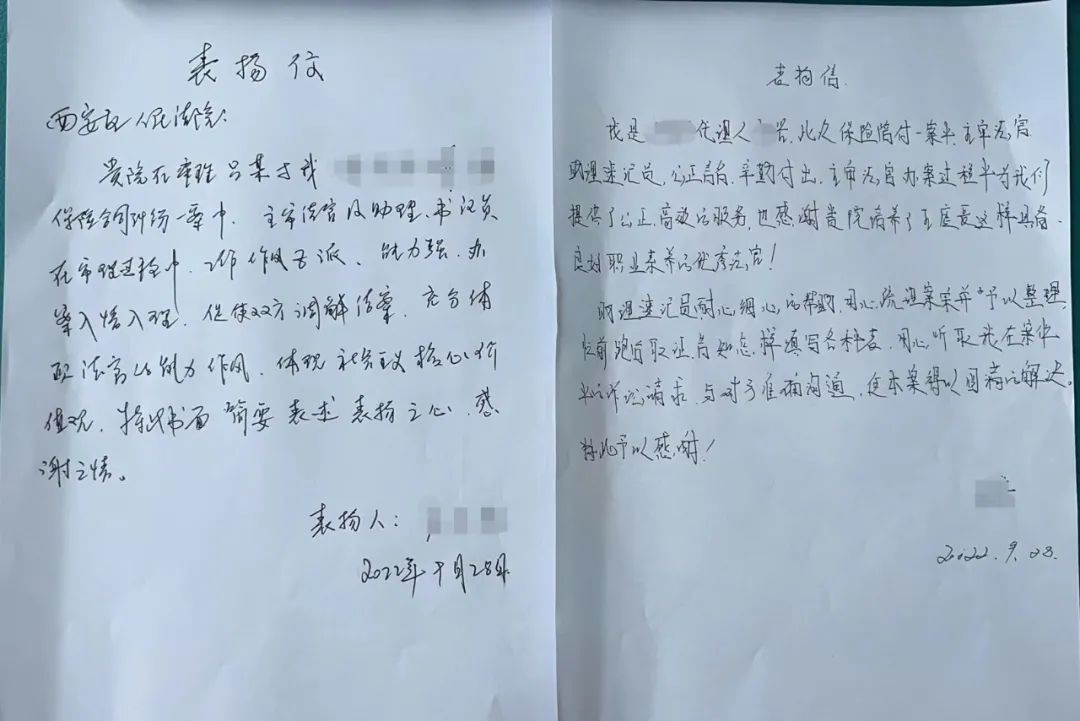 表扬信
西安区人民法院:
贵院在审理吕某于我
保险合同纠纷一案中，主审法官及助理、书记员
在审理过程中，工作作风正派、能力强、办
案入情入理，促使双方调解结案，充分体
现法官的能力作风，体现社会主义核心价
值观，特此书面简要表示表扬之心、感
谢之情。
表扬人：
2022年9月28日
表扬信
我是 代理人 此次保险赔付一案中，主审法官
助理速记员，公正高效、辛勤付出，主审法官办案过程中为我们
提供了公正、高效的服务，也感谢贵院培养了王庭长这样具有
良好职业素养的优秀法官！
助理速记员耐心细心的帮助，用心梳理案案并予以整理
取证 填写各种表，用心听取我在案件
中诉讼请求，与对方准确沟通，使本案得以圆满的解决。
特此予以感谢！
2022.9.28.